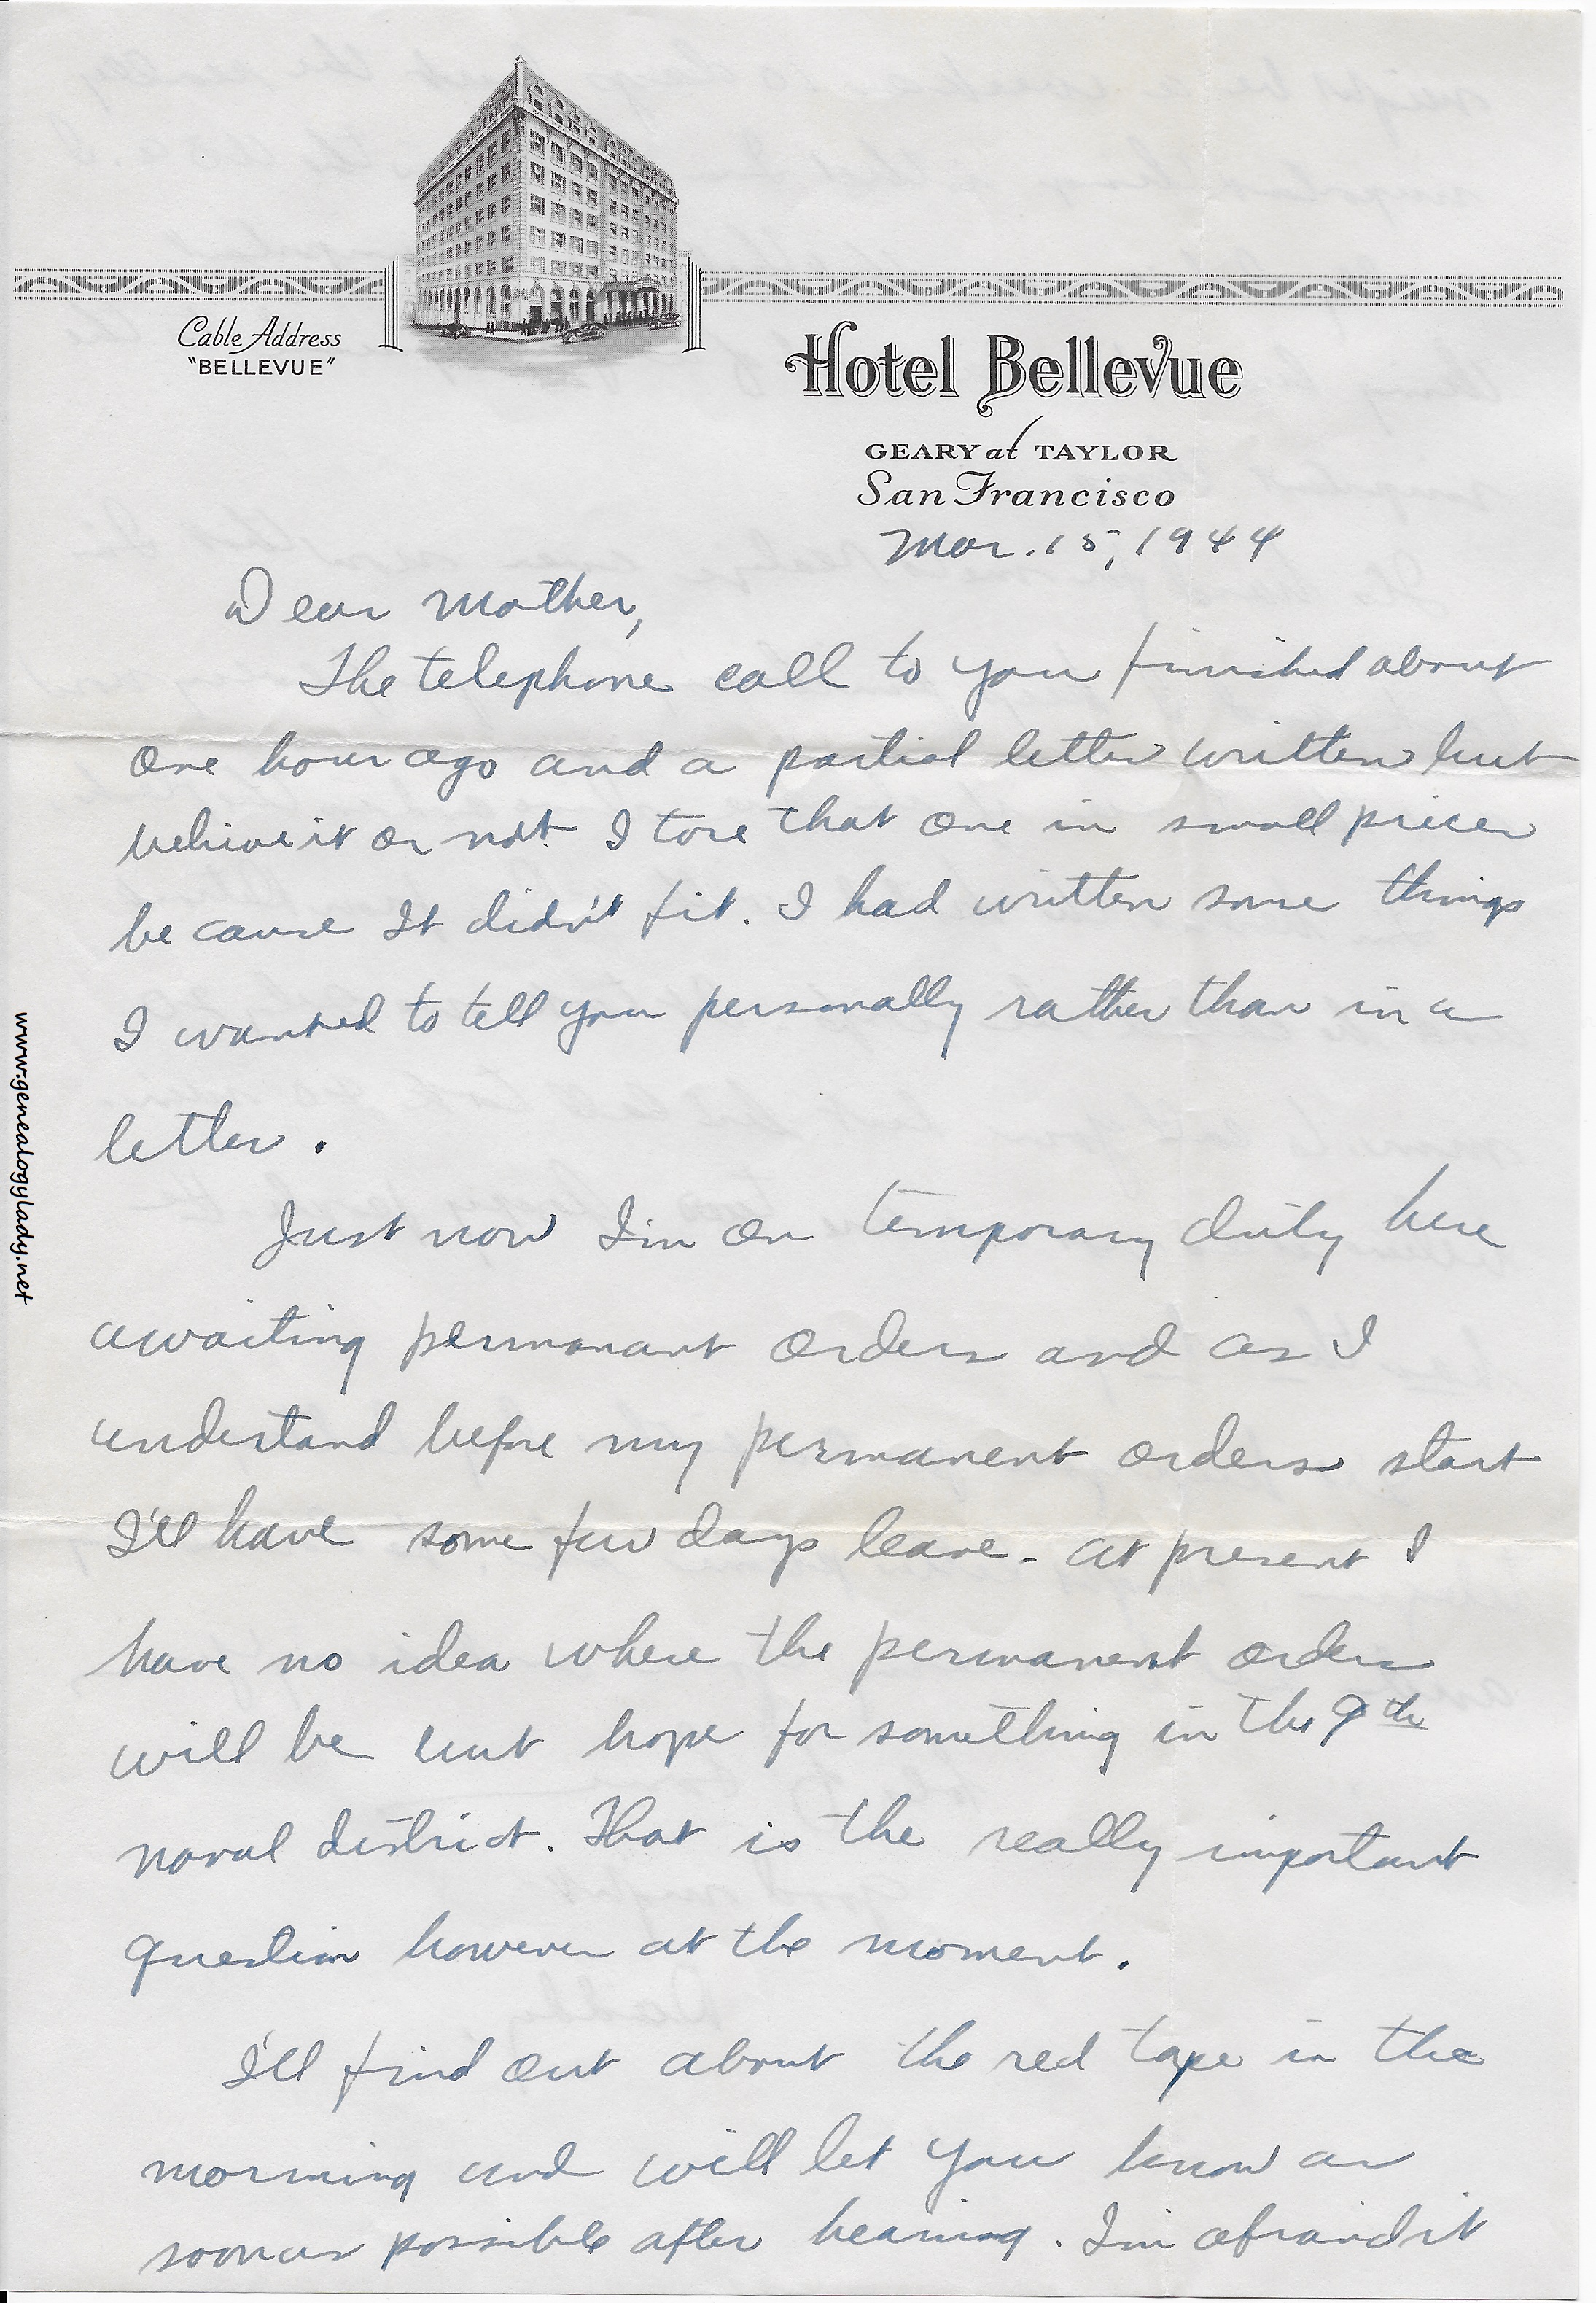 Cable Address
"BELLEVUE"
Hotel Bellevue
GEARY at TAYLOR
San Francisco
Mar. 15, 1944
Dear Mother,
The telephone call to you finished about
one hour ago and a partial letter written but
believe it or not I tore that one in small pieces
because It didn't fit. I had written some things
I wanted to tell you personally rather than in a
letter.
Just now I'm on temporary duty here
awaiting permanant orders and as I
understand before my permanent orders start
I'll have some few days leave - at present I
have no idea where the permanent orders
will be but hope for something in the 9th
naval district. That is the really important
question however at the moment.
I'll find out about the red tape in the
morning and will let you know as
soon as possible after hearing. I'm afraid it
www.genealogylady.net